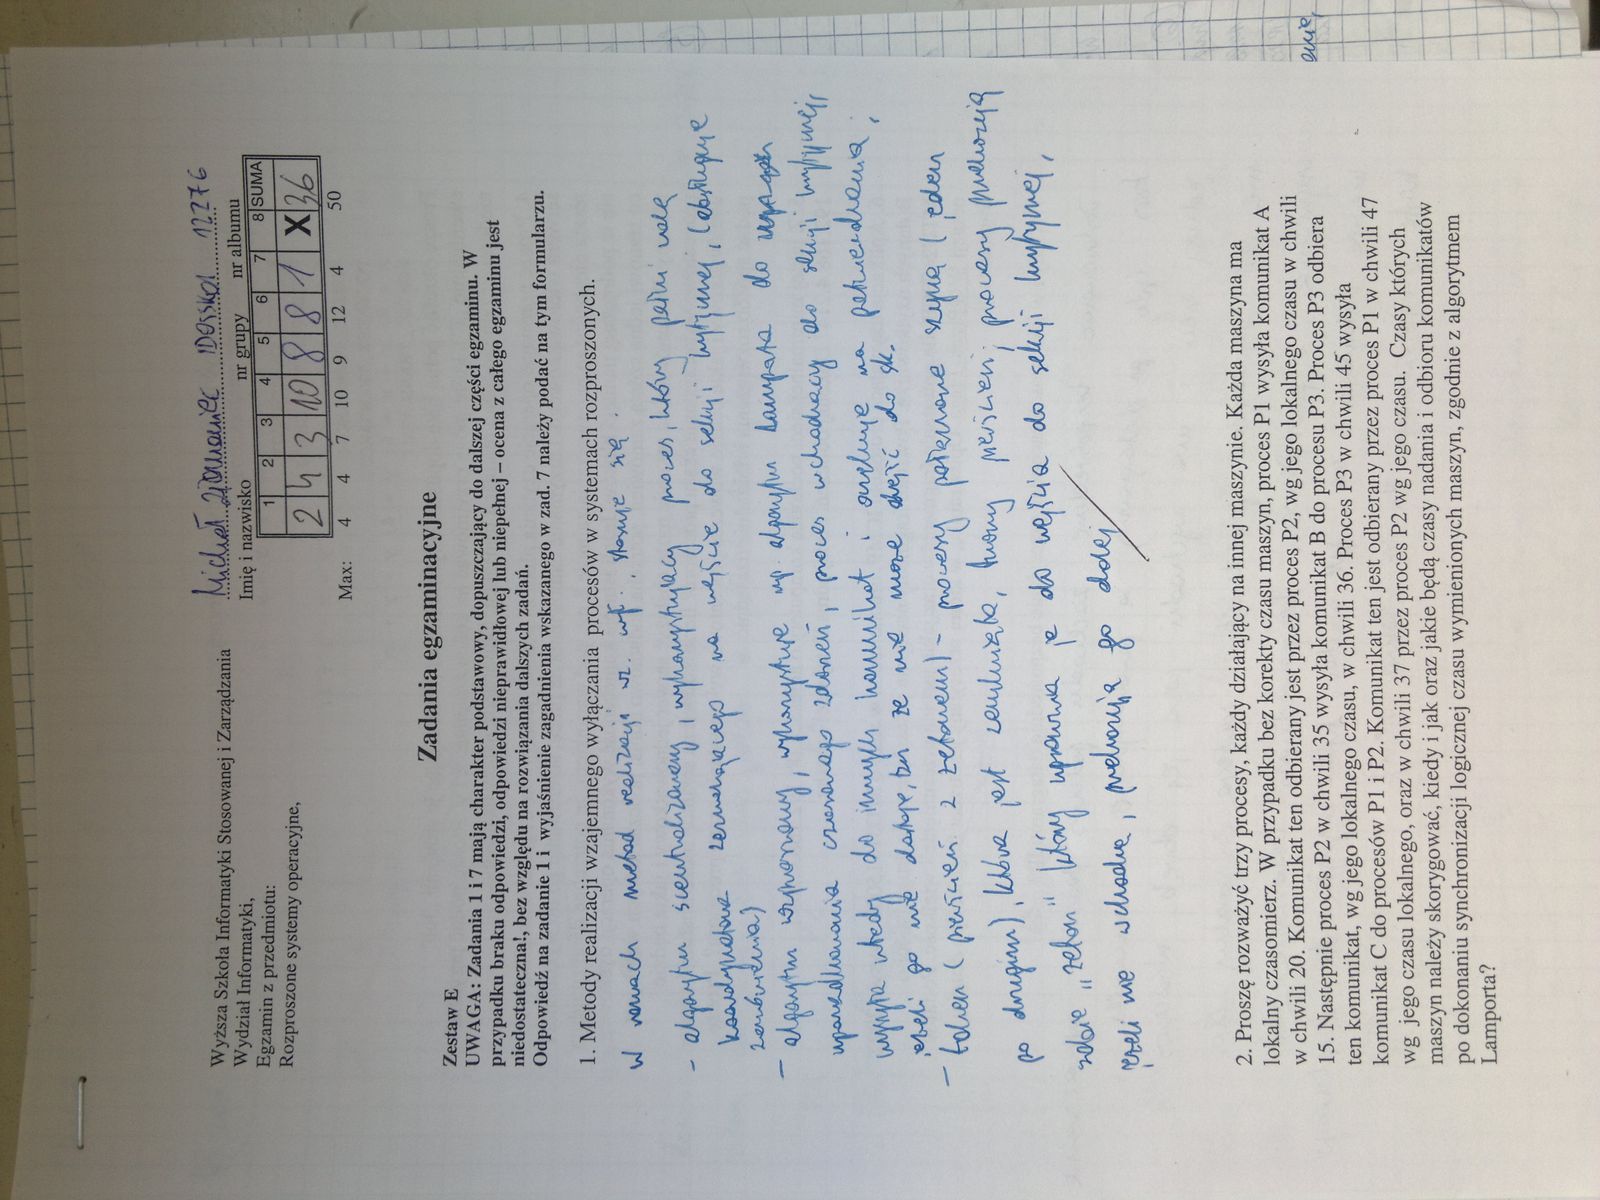 Wyższa Szkoła Informatyki Stosowanej i Zarządzania
Wydział Informatyki,
Egzamin z przedmiotu:
Rozproszone systemy operacyjne,
Michał 12276
Imię i nazwisko nr grupy nr albumu
1 2 3 4 5 6 7 8 SUMA
2 4 3 10 8 8 1 X 36
Max: 4 4 7 10 9 12 4 50
Zadania egzaminacyjne
Zestaw E
UWAGA: Zadania 1 i 7 mają charakter podstawowy, dopuszczający do dalszej części egzaminu. W
przypadku braku odpowiedzi, odpowiedzi nieprawidłowej lub niepełnej – ocena z całego egzaminu jest
niedostateczna!, bez względu na rozwiązania dalszych zadań.
Odpowiedź na zadanie 1 i wyjaśnienie zagadnienia wskazanego w zad. 7 należy podać na tym formularzu.
1. Metody realizacji wzajemnego wyłączania procesów w systemach rozproszonych.
W ramach metod realizacji wz. wył. stosuje się
- algorytm scentralizowany, wykorzystujący proces, który pełni rolę
koordynatora zezwalającego na wejście do sekcji krytycznej, (obsługuje
zamówienia)
- algorytm rozproszony, wykorzystuje np. algorytm Lamporta do
uporządkowania czasowego zdarzeń, proces wchodzący do sekcji krytycznej,
wysyła wtedy do innych komunikat i oczekuje na potwierdzenia,
jeżeli go nie dostaje, tzn że nie może wejść do sk.
- token (pierścień z żetonem) - procesy połączone szyną (jeden
po drugim), która jest zamknięta, tworzy pierścień; procesy przekazują
sobie „żeton" który uprawnia je do wejścia do sekcji krytycznej,
jeżeli nie wchodzą, przekazują go dalej
2. Proszę rozważyć trzy procesy, każdy działający na innej maszynie. Każda maszyna ma
lokalny czasomierz. W przypadku bez korekty czasu maszyn, proces P1 wysyła komunikat A
w chwili 20. Komunikat ten odbierany jest przez proces P2, wg jego lokalnego czasu w chwili
15. Następnie proces P2 w chwili 35 wysyła komunikat B do procesu P3. Proces P3 odbiera
ten komunikat, wg jego lokalnego czasu, w chwili 36. Proces P3 w chwili 45 wysyła
komunikat C do procesów P1 i P2. Komunikat ten jest odbierany przez proces P1 w chwili 47
wg jego czasu lokalnego, oraz w chwili 37 przez proces P2 wg jego czasu. Czasy których
maszyn należy skorygować, kiedy i jak oraz jakie będą czasy nadania i odbioru komunikatów
po dokonaniu synchronizacji logicznej czasu wymienionych maszyn, zgodnie z algorytmem
Lamporta?